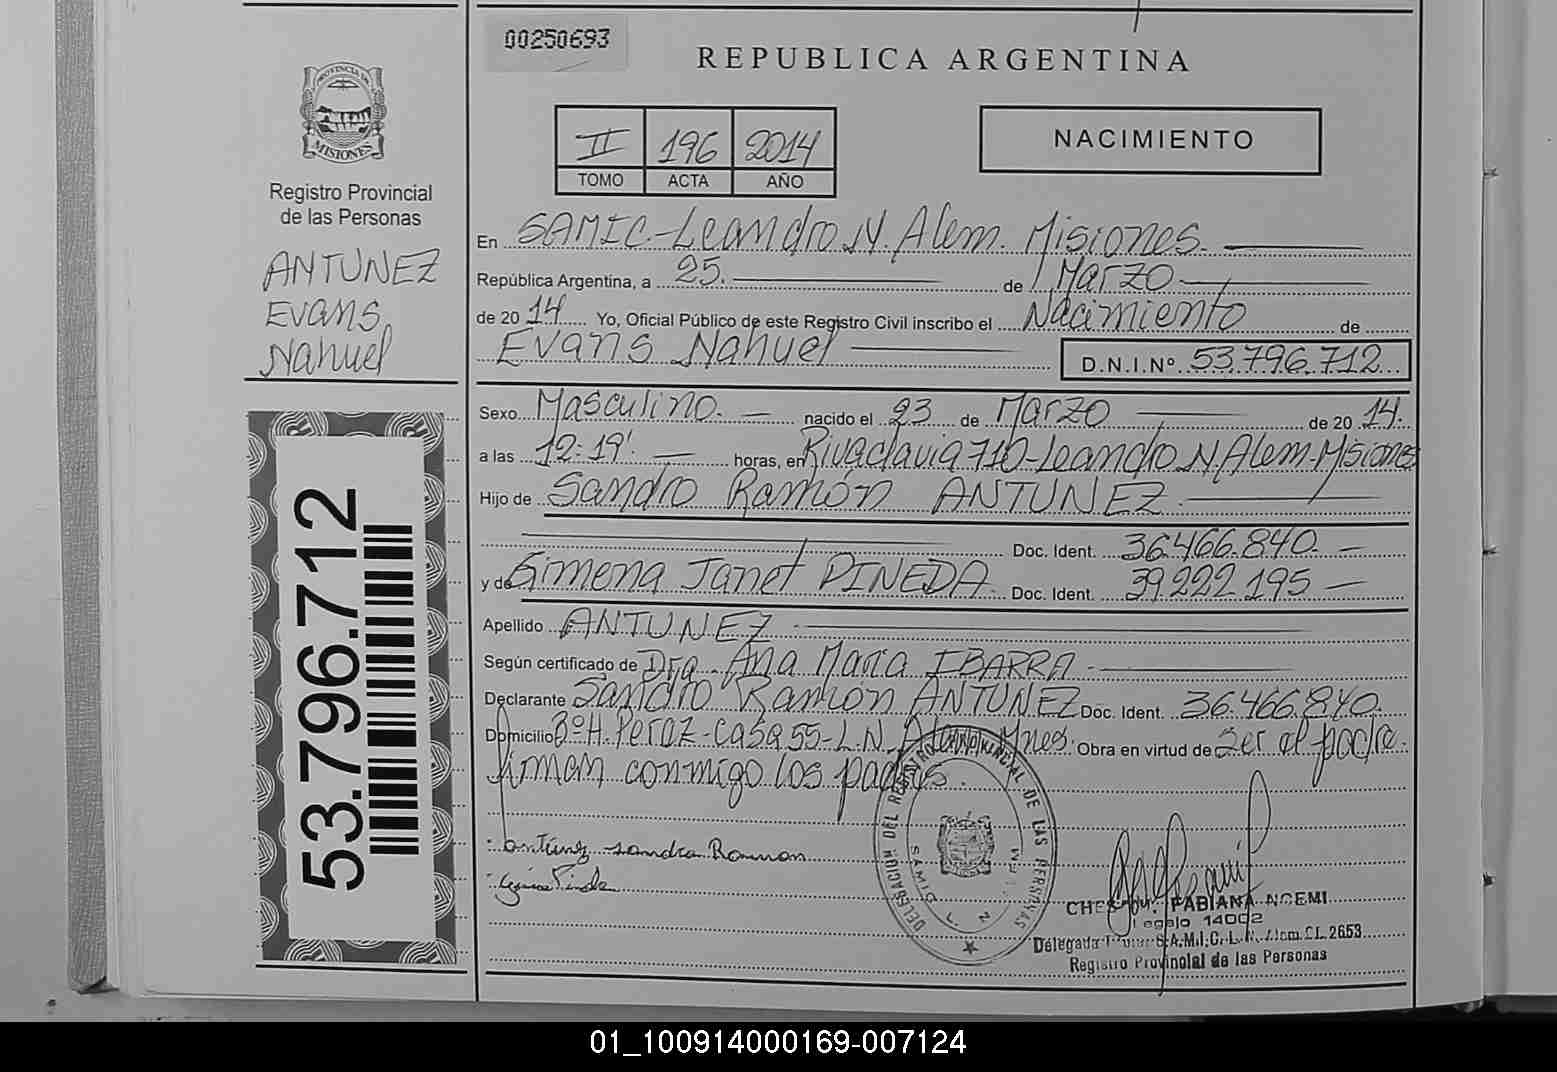 00250693
REPUBLICA ARGENTINA
PROVINCIA DE
MISIONES
II 196 2014
TOMO ACTA AÑO
NACIMIENTO
Registro Provincial
de las Personas
ANTUNEZ
Evans
Nahuel
En SAMIC-Leandro N. Alem. Misiones.
República Argentina, a 25. de Marzo
de 2014 Yo, Oficial Público de este Registro Civil inscribo el Nacimiento de
Evans Nahuel D.N.I.Nº 53.796.712
Sexo Masculino. nacido el 23 de Marzo de 2014.
a las 12:19'. horas, en Rivadavia 710-Leandro N. Alem-Misiones
Hijo de Sandro Ramón ANTUNEZ
Doc. Ident. 36.466.840.
y de Gimena Janet PINEDA Doc. Ident. 39.222.195
Apellido ANTUNEZ
Según certificado de Dra. Ana Maria IBARRA
Declarante Sandro Ramón ANTUNEZ Doc. Ident. 36.466.840.
Domicilio Bº H. Peraz-Casa 55-L.N. Alem Mnes. Obra en virtud de Ser el padre.
firman conmigo los padres.
53.796.712
antunez sandro Ramon
DELEGACION DEL REGISTRO PROVINCIAL DE LAS PERSONAS
FABIANA NOEMI
Legajo 14002
Delegada Titular S.A.M.I.C. L. N. Alem CI. 2653
Registro Provincial de las Personas
01_100914000169-007124